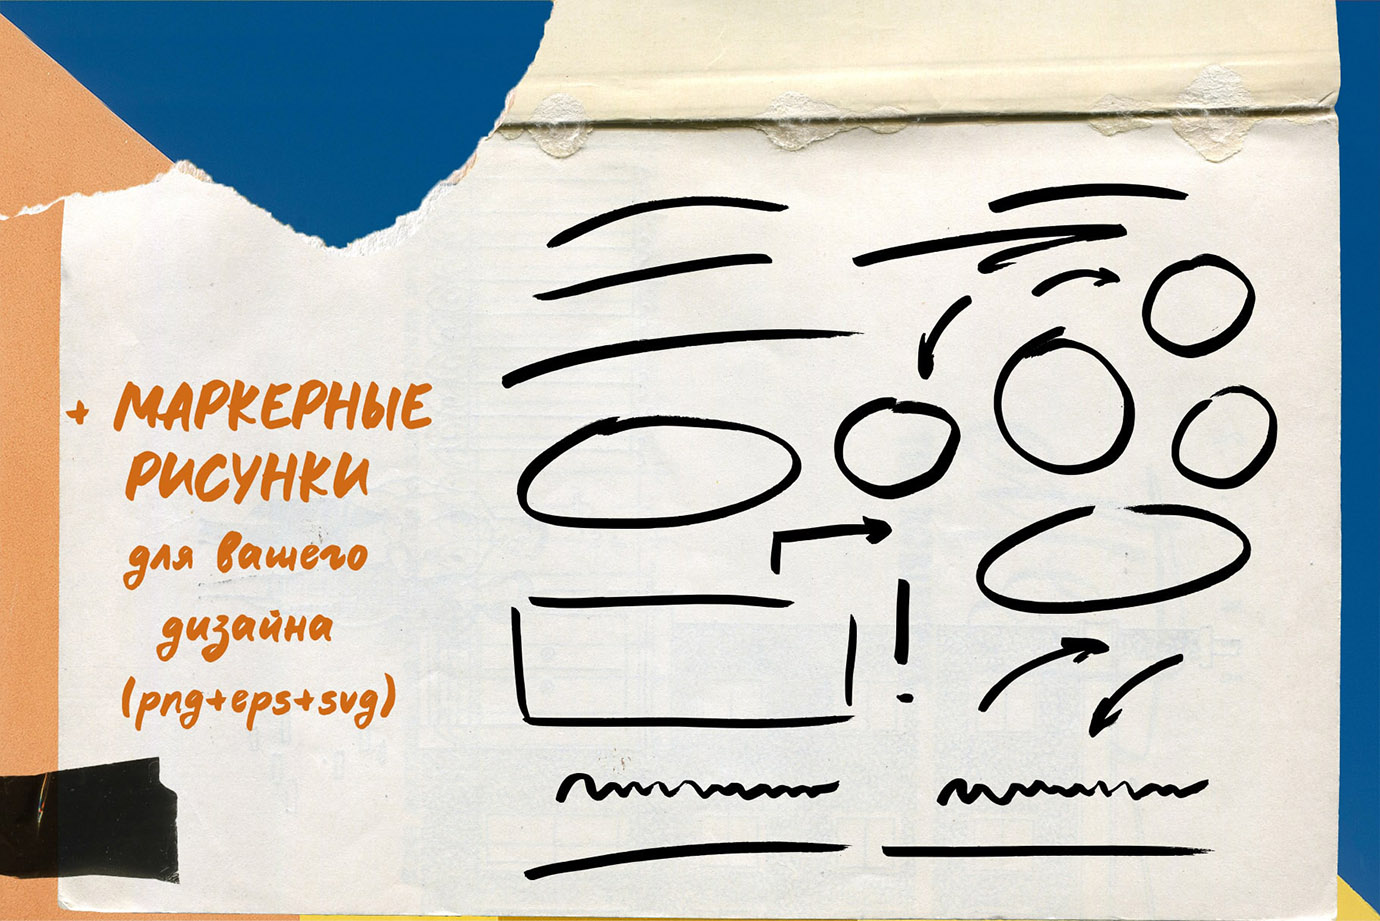 + МАРКЕРНЫЕ
РИСУНКИ
для вашего
дизайна
(png+eps+svg)